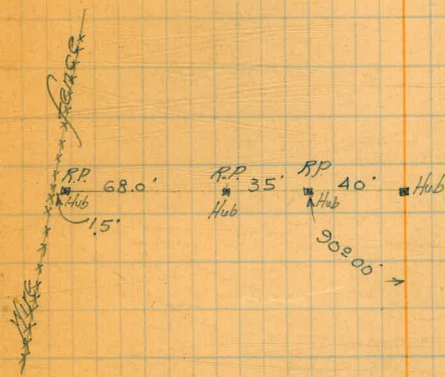 Fence
R.P. 68.0' R.P. 35' RP 40' Hub
Hub Hub Hub
1.5'
90º00'